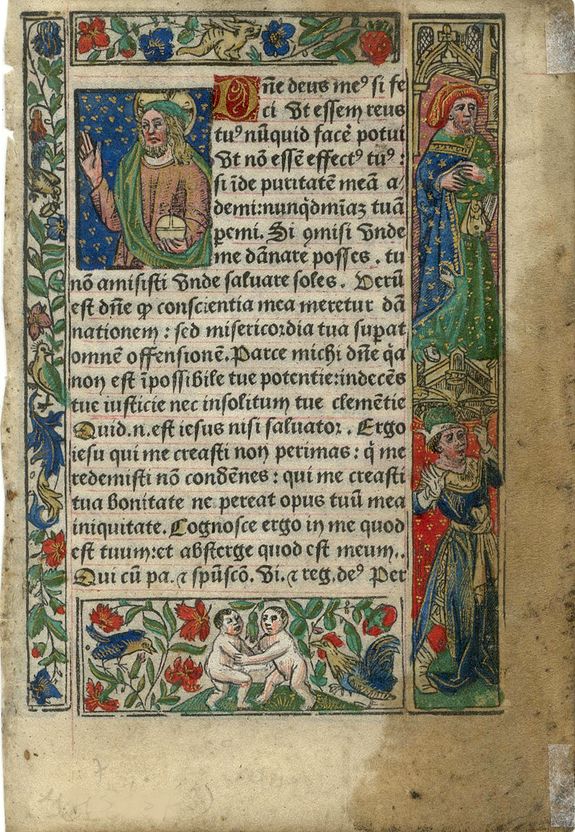 Dñe deus meꝰ si fe
ci Vt essem reus
tuꝰ nūquid facē potui
Vt nō essē effectꝰ tuꝰ :
si īde puritatē meā a⸗
demi:nunq̄dmīaꝫ tuā
ꝑemi. Si omisi Vnde
me dānare posses . tu
nō amisisti Vnde saluare soles . Verū
est dñe ꝙ conscientia mea meretur dā
nationem : sed misericordia tua suꝑat
omnē offensionē. Parce michi dñe q̇a
non est īpossibile tue potentie:indecēs
tue iusticie nec insolitum tue clemētie
Quid.n.est iesus nisi saluator . Ergo
iesu qui me creasti non perimas : q̇ me
redemisti nō condēnes : qui me creasti
tua bonitate ne pereat opus tuū mea
iniquitate. Cognosce ergo in me quod
est tuum:et absterge quod est meum..
Qui cū pa. ⁊ spūscō. Vi. ⁊ reg. deꝰ Per